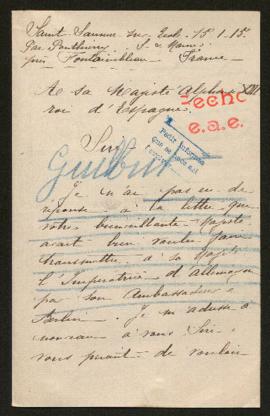 Saint Sauveur sur École. 15.1.15.
Par Ponthierry S. & Marne
près Fontainebleau France
A sa Majesté Alphonse XIII
roi d'Espagne.
Hecho
e.a.e.
Pedir informes
Sire
Je n'ai pas eu de
réponse à la lettre que
votre bienveillante Majesté
avait bien voulu faire
transmettre à sa Majesté
l'Impératrice d'Allemagne
par son Ambassadeur à
Berlin. Je m'adresse à
nouveau à vous Sire
vous priant de vouloir